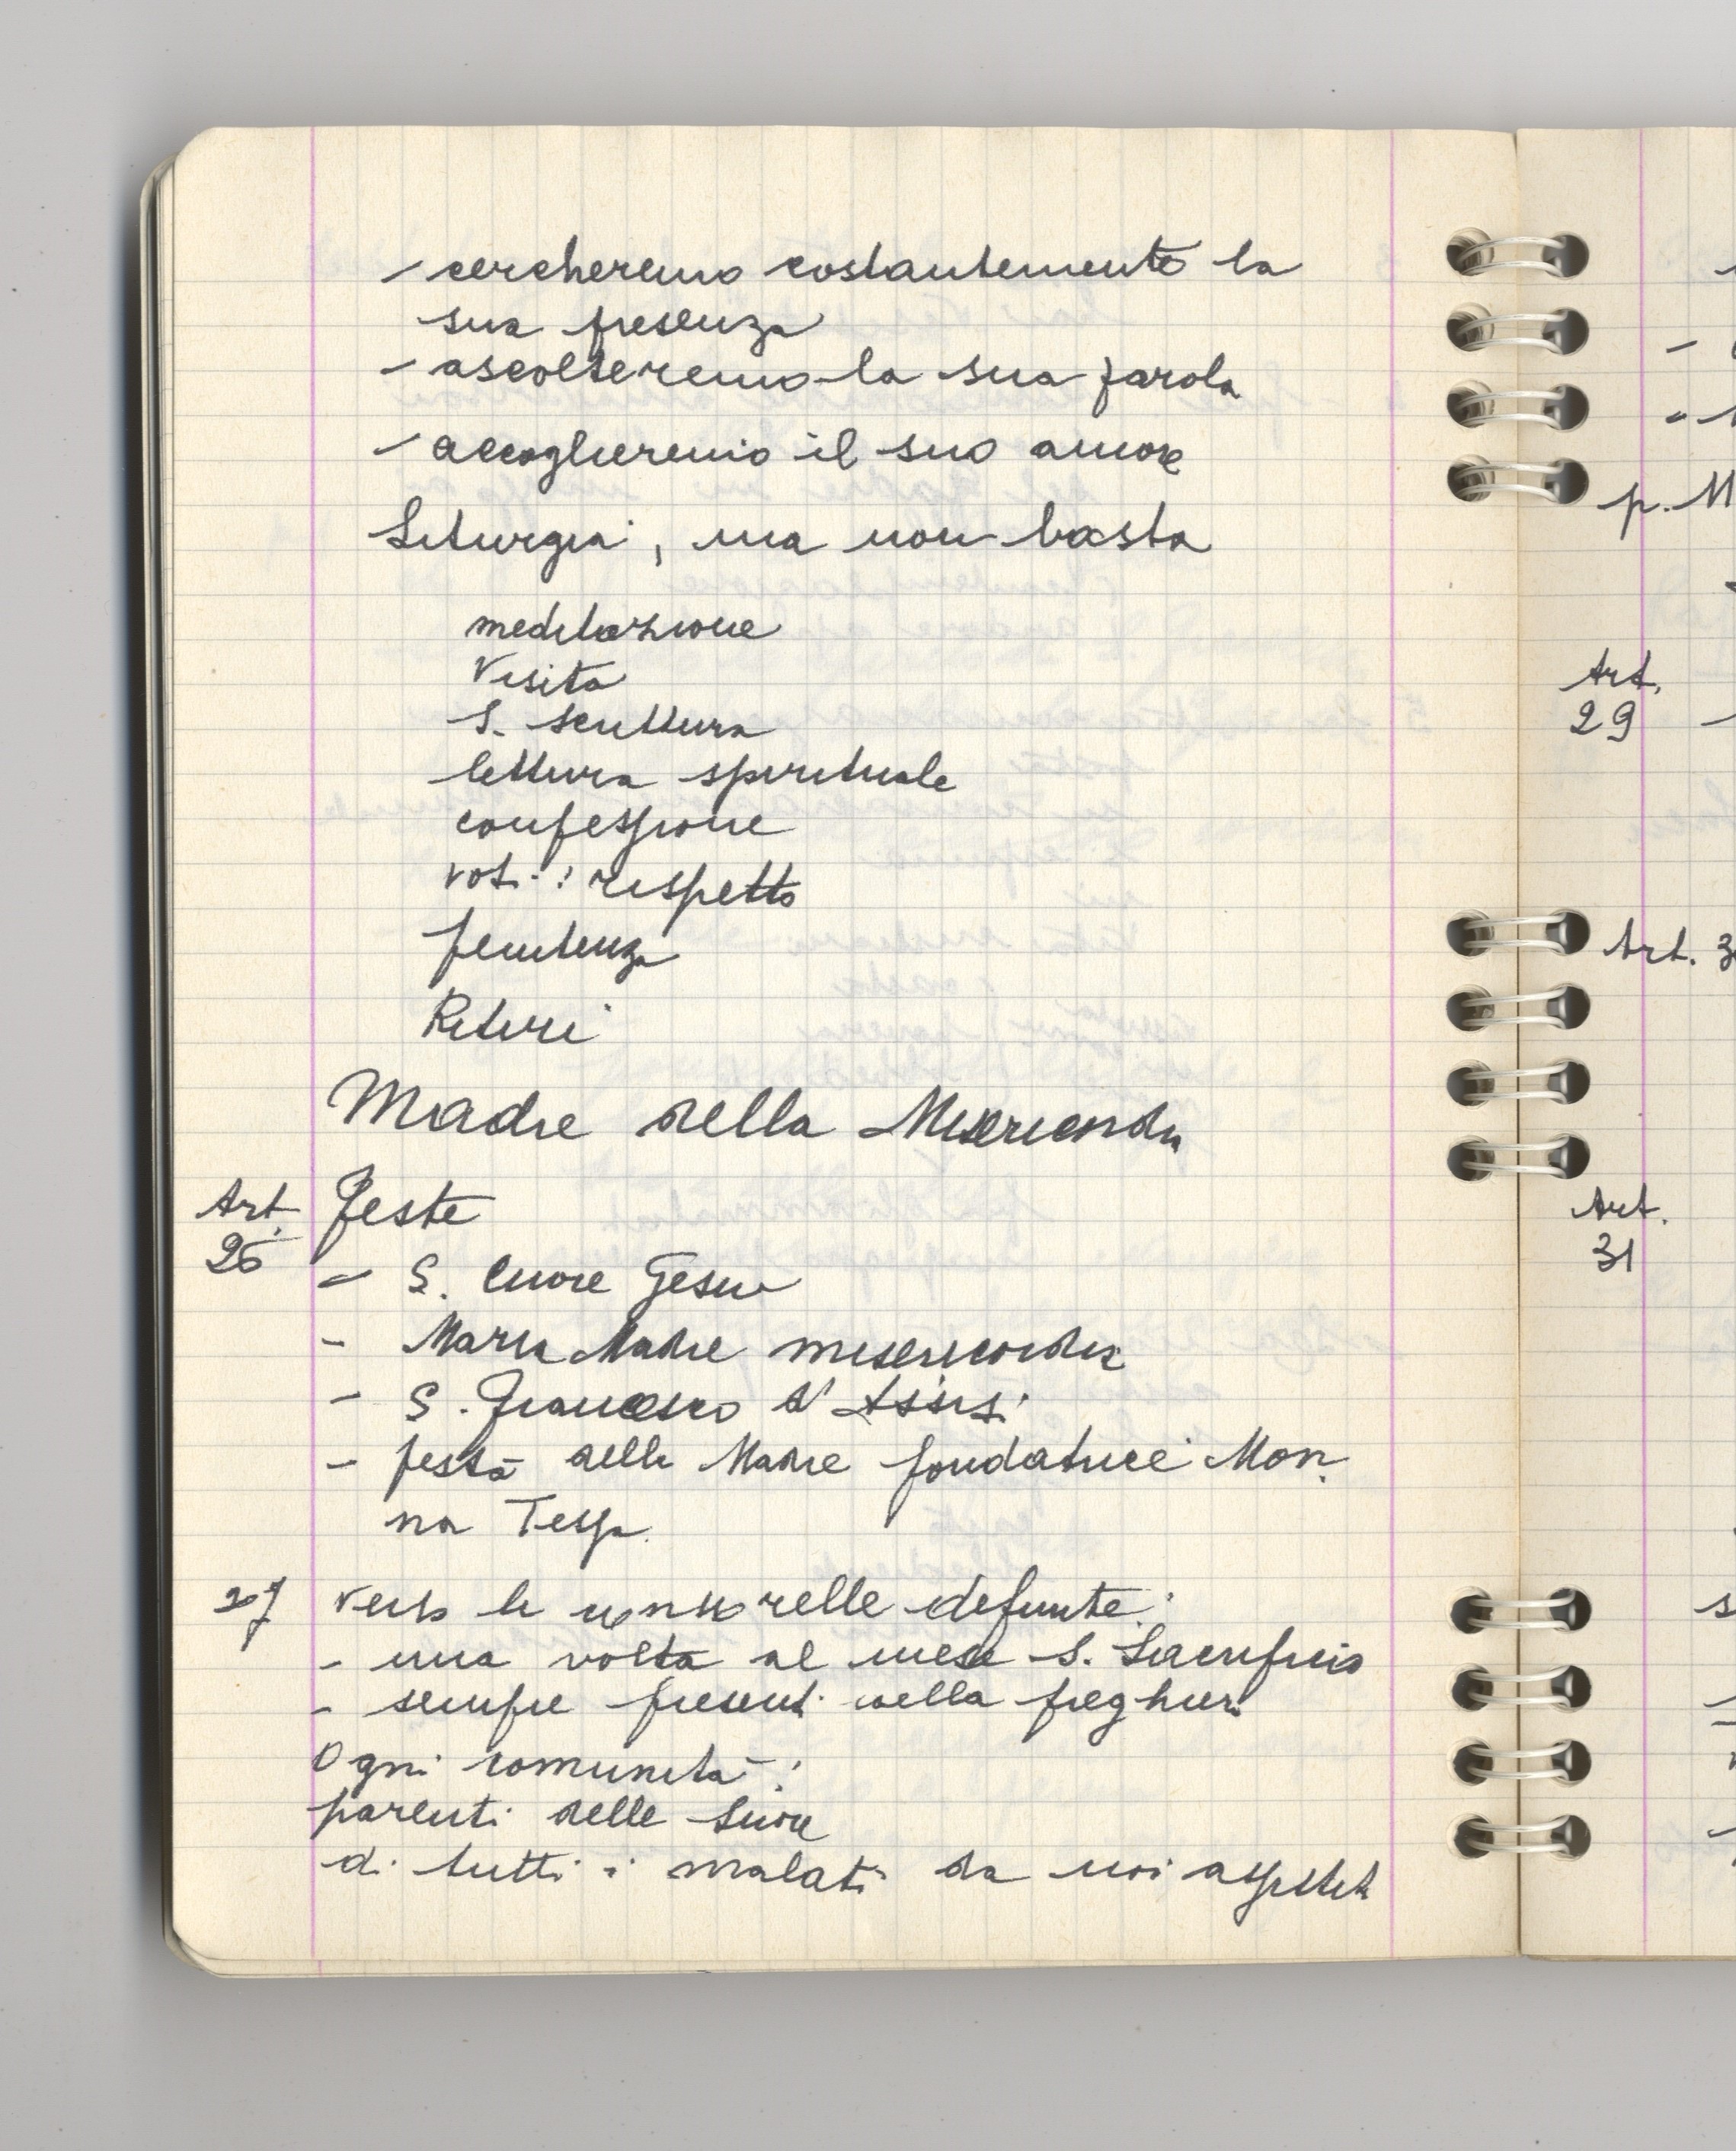 - cercheremo costantemente la
sua presenza
- ascolteremo la sua parola
- accoglieremo il suo amore
Liturgia, ma non basta
meditazione
Visita
S. scrittura
lettura spirituale
confessione
voti: rispetto
penitenza
Ritiri
Madre della Misericordia
Art. Feste
26
- S. Cuore Gesù
- Maria Madre misericordia
- S. Francesco d'Assisi
- festa della Madre fondatrice Mon
na Tessa.
27 verso le consorelle defunte:
- una volta al mese S. Sacrificio
- sempre presenti nella preghiera
Ogni comunità:
parenti delle Suore
di tutti i malati da noi assistiti
p. M
Art.
29
Art. 3
Art.
31